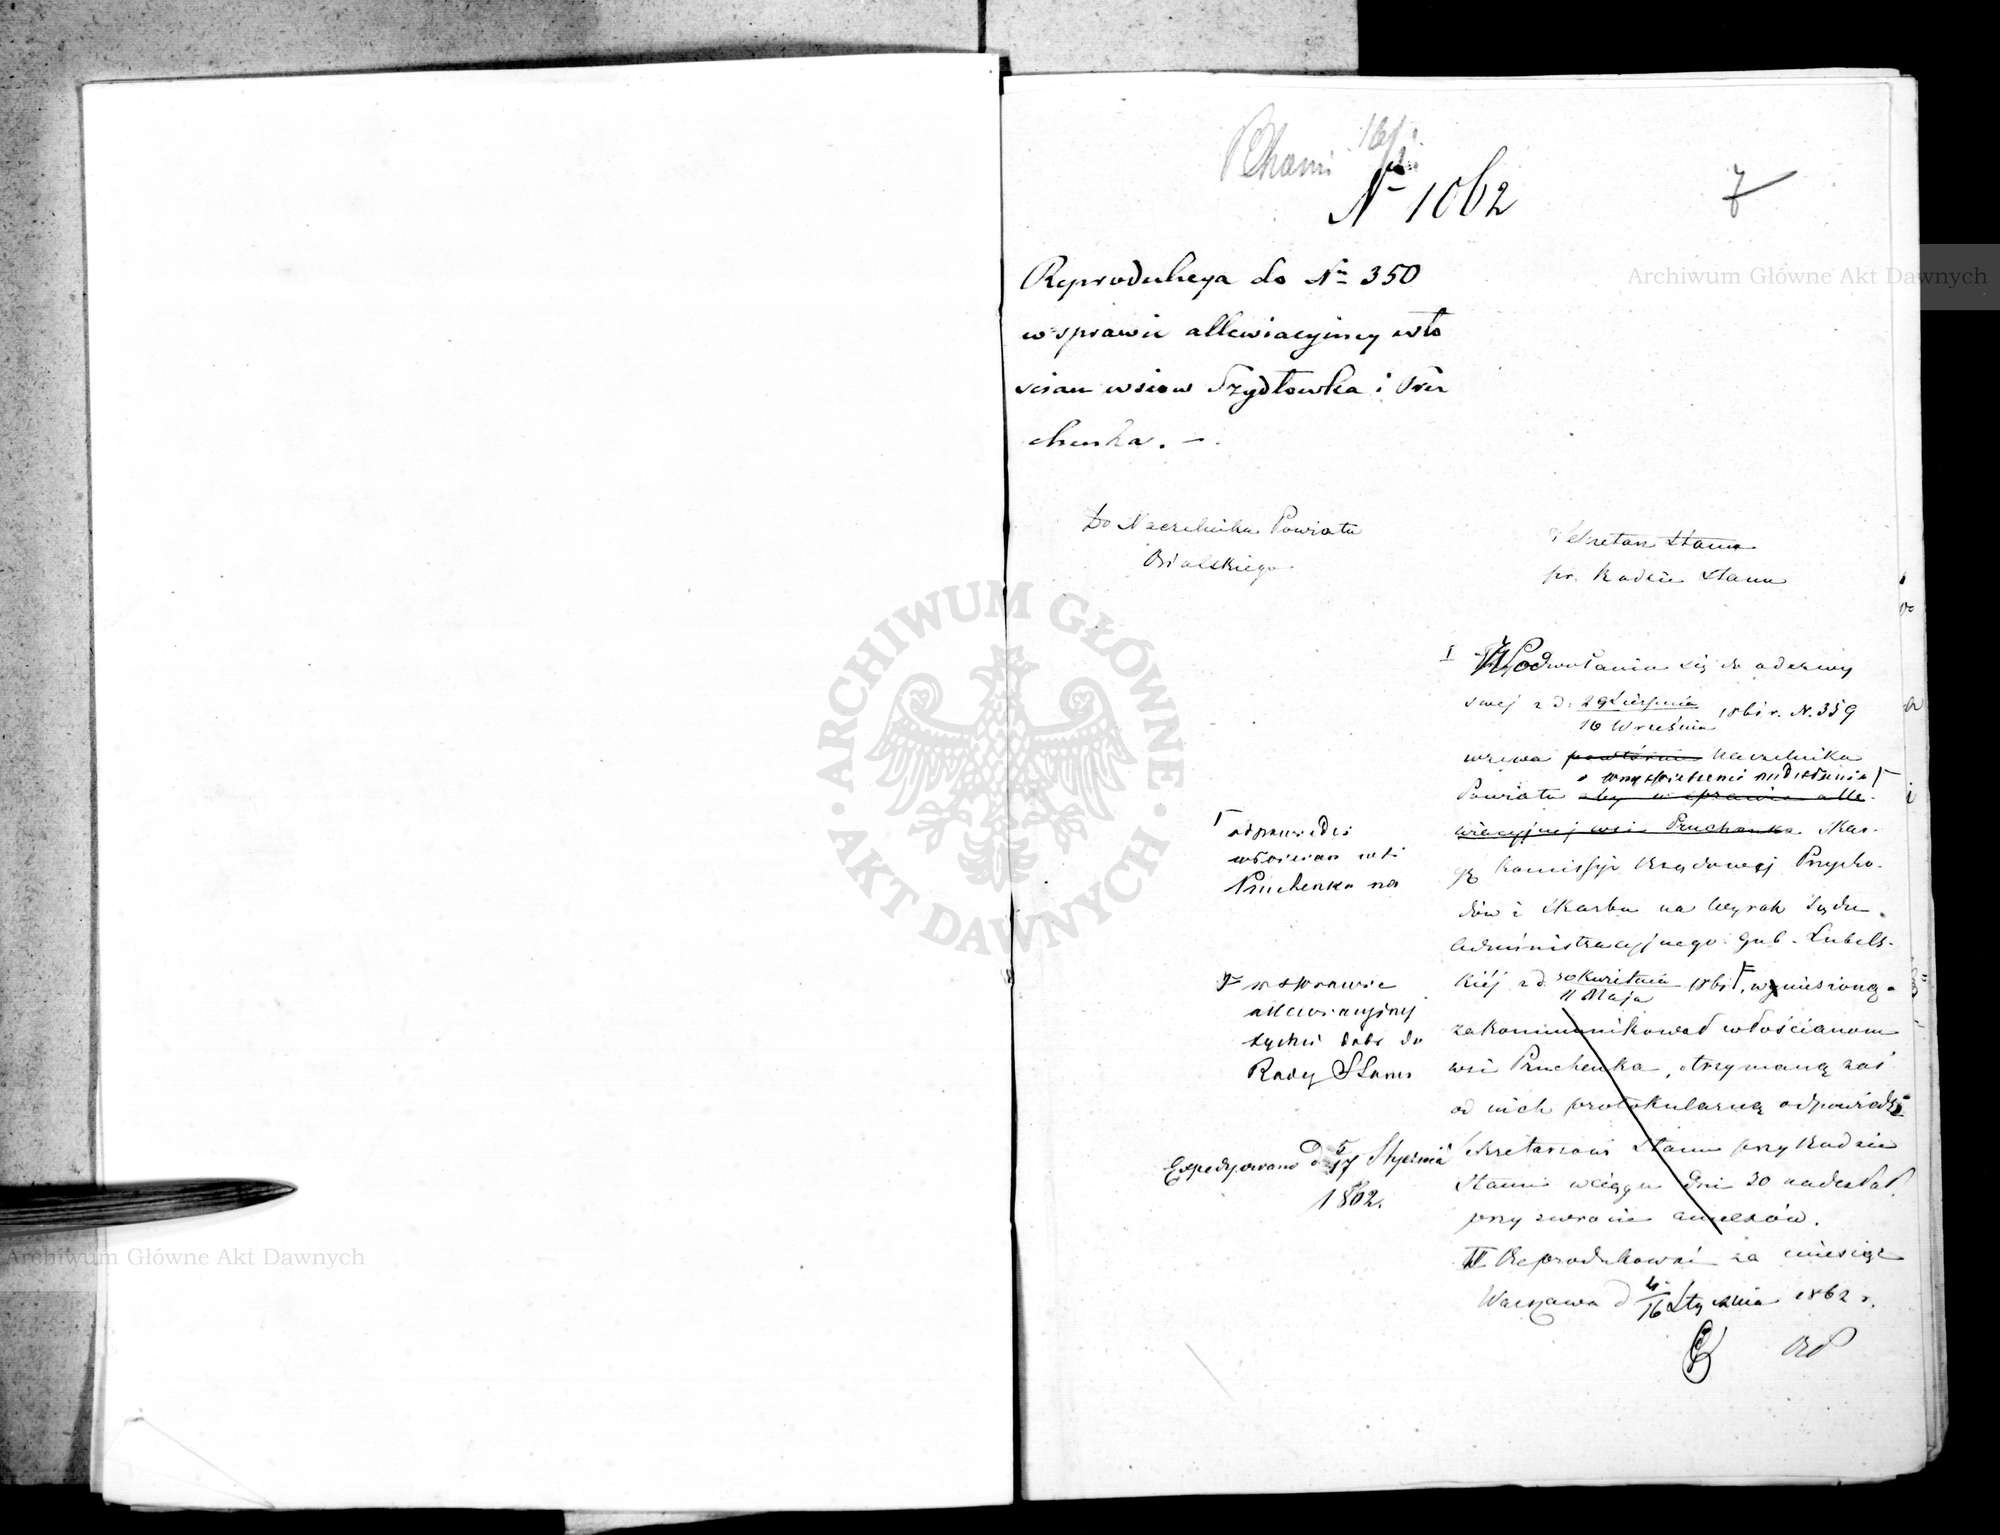 No 1062
7
Reprodukcya do No 350
w sprawie allewiacyjney wło
scian wsiow Szydłowka i Pru
chenka. —
Do Naczelnika Powiatu
Bialskiego
Sekretarz Stanu
pr. Radzie Stanu
I W Podwołaniu się do odezwy
swej z d. 29 Sierpnia
10 Września 1861 r. N. 359
wzywa powtórnie Naczelnika
o wyświetlenie nadesłania
Powiatu aby w sprawie alle-
wiacyjnej wsi Pruchenka Skar-
gę Kommissyi Rządowej Przycho-
dów i Skarbu na Wyrok Sądu
Administracyjnego Gub. Lubels-
kiéj z d. 30 Kwietnia
11 Maja 1861 r. wyniesioną
zakommunikował włościanom
wsi Pruchenka, otrzymaną zaś
od nich protokularną odpowiedź
Sekretarzowi Stanu przy Radzie
Stanu w ciągu dni 30 nadesłał
przy zwrocie annexów.
II Reprodukować za miesiąc
Warszawa d 4/16 Stycznia 1862 r.
odpowiedzi
włościan wsi
Pruchenka na
w sprawie
allewiacyjnej
tychże dóbr do
Rady Stanu
Expedyowano d 5/17 Stycznia
1862.
Archiwum Główne Akt Dawnych
Archiwum Główne Akt Dawnych
ARCHIWUM GŁÓWNE · AKT DAWNYCH ·